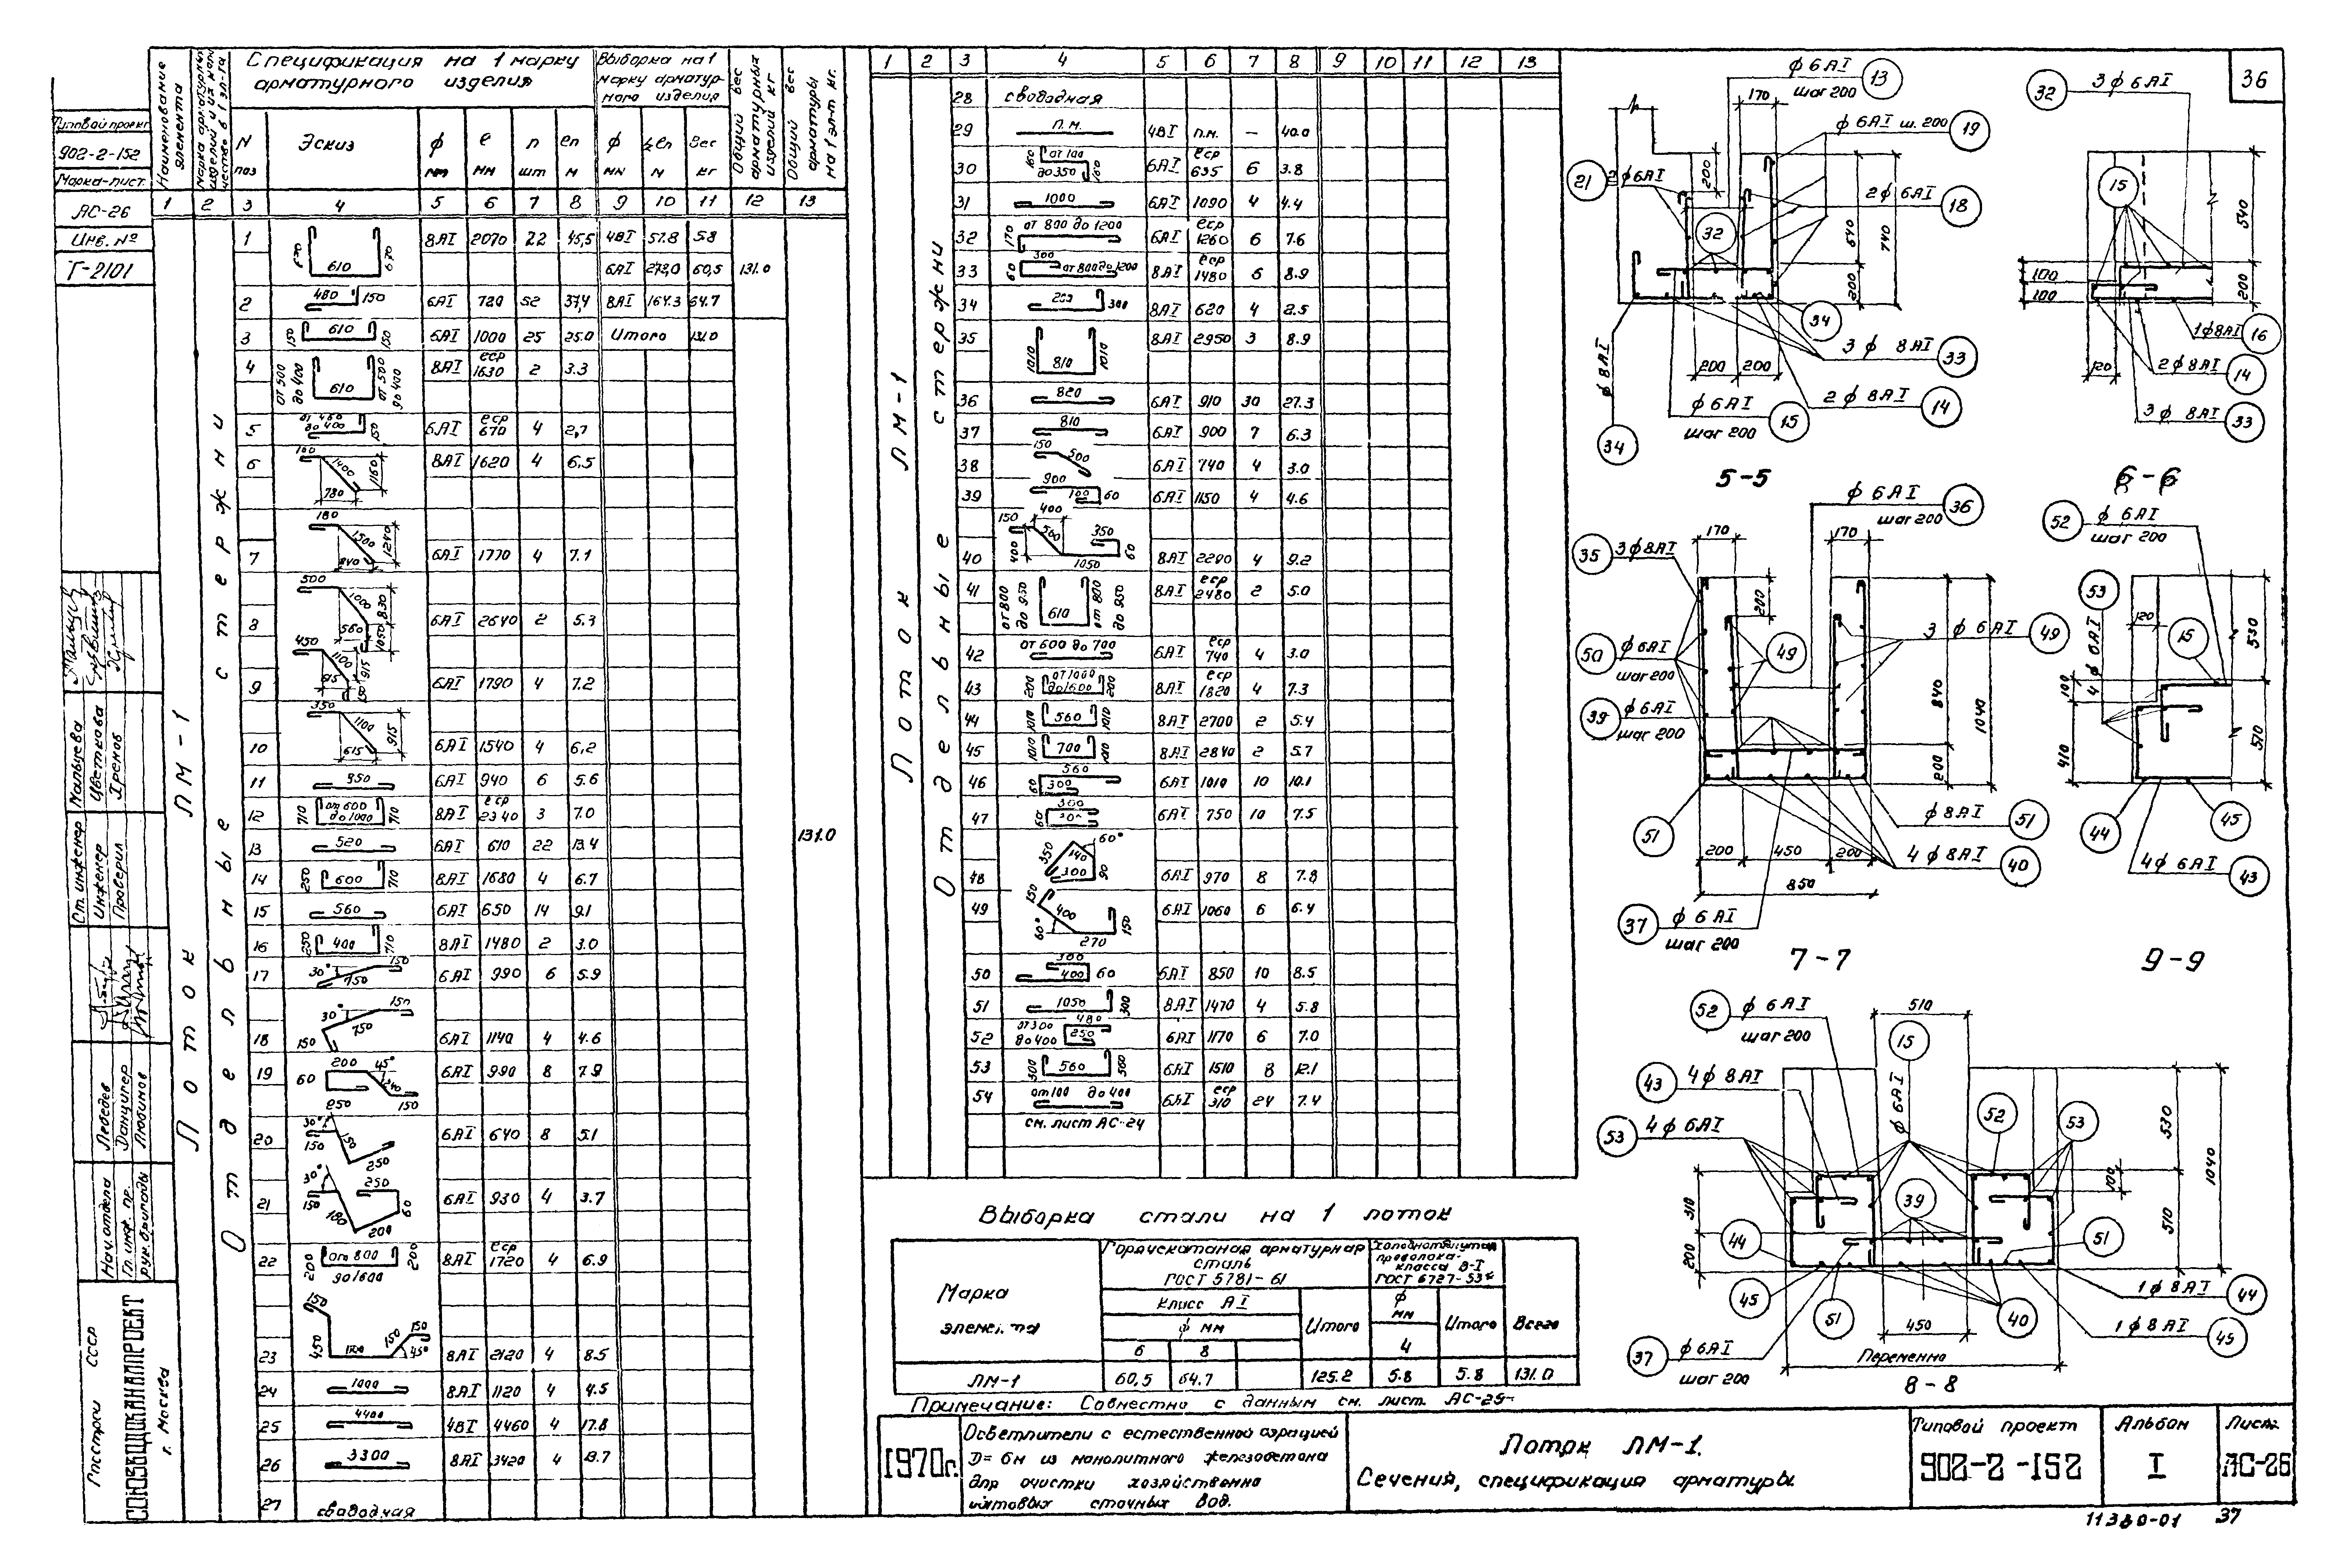 36
Типовой проект
902-2-152
Марка-лист
АС-26
Инв. №
Т-2101
Наименование элемента
Спецификация на 1 марку арматурного изделия
Выборка на 1 марку арматурного изделия
Общий вес арматурных изделий кг
Общий вес арматуры на 1 эл-т кг.
N поз
Эскиз
ф мм
ℓ мм
n шт
ℓn м
ф мм
Σℓn м
Вес кг
1 2 3 4 5 6 7 8 9 10 11 12 13
Лоток ЛМ-1
Отдельные стержни
1 670 610 670 8АI 2070 22 45,5 4ВI 57.8 5.8
6АI 272,0 60,5 131.0
2 480 150 6АI 720 52 37,4 8АI 164.3 64.7
3 150 610 150 6АI 1000 25 25.0 Итого 131.0
4 от 500 до 400 610 от 500 до 400 8АI ℓср 1630 2 3.3
5 от 460 до 400 150 6АI ℓср 670 4 2,7
6 160 1400 1160 780 8АI 1620 4 6.5
7 180 1500 1240 840 6АI 1770 4 7.1
8 500 1000 830 560 1050 6АI 2640 2 5.3
9 450 1100 915 6АI 1790 4 7.2
10 350 1100 915 615 6АI 1540 4 6,2
11 850 6АI 940 6 5.6
12 710 от 600 до 1000 710 8АI ℓср 2340 3 7.0
131.0
13 520 6АI 610 22 13.4
14 250 600 710 8АI 1680 4 6.7
15 560 6АI 650 14 9.1
16 250 400 710 8АI 1480 2 3.0
17 30° 750 150 6АI 990 6 5.9
18 150 30° 750 150 6АI 1140 4 4.6
19 200 45° 60 240 250 150 6АI 990 8 7.9
20 30° 150 150 250 6АI 640 8 5.1
21 30° 150 180 250 60 200 6АI 930 4 3.7
22 200 от 800 до 1600 200 8АI ℓср 1720 4 6.9
23 150 450 150 150 45° 8АI 2120 4 8.5
24 1000 8АI 1120 4 4.5
25 4400 4ВI 4460 4 17.8
26 3300 8АI 3420 4 13.7
27 свободная
1 2 3 4 5 6 7 8 9 10 11 12 13
Лоток ЛМ-1
Отдельные стержни
28 свободная
29 п.м. 4ВI п.м. — 40.0
30 160 от 100 до 350 160 6АI ℓср 635 6 3.8
31 1000 6АI 1090 4 4.4
32 170 от 800 до 1200 6АI ℓср 1260 6 7.6
33 300 60 от 800 до 1200 8АI ℓср 1480 6 8.9
34 300 8АI 620 4 2.5
35 1010 810 1010 8АI 2950 3 8.9
36 820 6АI 910 30 27.3
37 810 6АI 900 7 6.3
38 150 500 6АI 740 4 3.0
39 900 100 60 6АI 1150 4 4.6
40 150 400 500 400 350 60 1050 8АI 2290 4 9.2
41 от 800 до 950 610 от 800 до 950 8АI ℓср 2480 2 5.0
42 от 600 до 700 6АI ℓср 740 4 3.0
43 200 от 1000 до 1600 200 8АI ℓср 1820 4 7.3
44 1010 560 1010 8АI 2700 2 5.4
45 1010 700 1010 8АI 2840 2 5.7
46 560 60 300 6АI 1010 10 10.1
47 300 60 300 6АI 750 10 7.5
48 60° 350 140 300 90 6АI 970 8 7.8
49 150 400 60° 270 150 6АI 1060 6 6.4
50 300 400 60 6АI 850 10 8.5
51 1050 300 8АI 1470 4 5.8
52 от 300 до 400 480 250 6АI 1170 6 7.0
53 500 560 500 6АI 1510 8 12.1
54 от 100 до 400 6АI ℓср 310 24 7.4
см. лист АС-24
Выборка стали на 1 лоток
Марка элемента
Горячекатаная арматурная сталь
ГОСТ 5781-61
Класс АI
ф мм
6 8
Итого
Холоднотянутая проволока класса В-I
ГОСТ 6727-53*
ф мм
4
Итого
Всего
ЛМ-1 60,5 64.7 125.2 5.8 5.8 131.0
Примечание: Совместно с данным см. лист. АС-25
ф 6АI шаг 200 13
170
ф 6АI ш. 200 19
21 2ф6АI
200
2ф6АI 18
32
640
740
200
34
3 ф 8АI 33
200 200
2 ф 8АI 14
ф 6АI шаг 200 15
ф 8АI
34
5-5
32 3ф6АI
15
540
100
100
200
1ф8АI 16
120
2ф8АI 14
3ф 8АI 33
6-6
ф 6АI шаг 200 36
170 170
35 3ф8АI
200
50 ф6АI шаг 200
49
3 ф 6АI 49
39 ф6АI шаг 200
840
1040
200
51
ф8АI 51
200 450 200
4ф8АI 40
850
37 ф 6АI шаг 200
7-7
52 ф 6АI шаг 200
53
4 ф 6АI
120
15
530
100
410
510
44 45
4ф 6АI 43
9-9
52 ф 6АI шаг 200
510
15
ф 6АI
43 4ф 8АI
53 4ф6АI
52 53
530
1040
100
310
39
510
200
44 51
45 51 40
1ф8АI 44
450
1ф8АI 45
37 ф6АI шаг 200
Переменно
8-8
Ст. инженер Мальцева
Инженер Цветкова
Проверил
Нач. отдела Лебедев
Гл. инж. пр. Данцигер
рук. бригады Любимов
Госстрой СССР
СОЮЗВОДОКАНАЛПРОЕКТ
г. Москва
1970г.
Осветлители с естественной аэрацией
D= 6м из монолитного железобетона
для очистки хозяйственно
бытовых сточных вод.
Лоток ЛМ-1.
Сечения, спецификация арматуры.
Типовой проект
902-2-152
Альбом
I
Лист
АС-26
11380-01 37